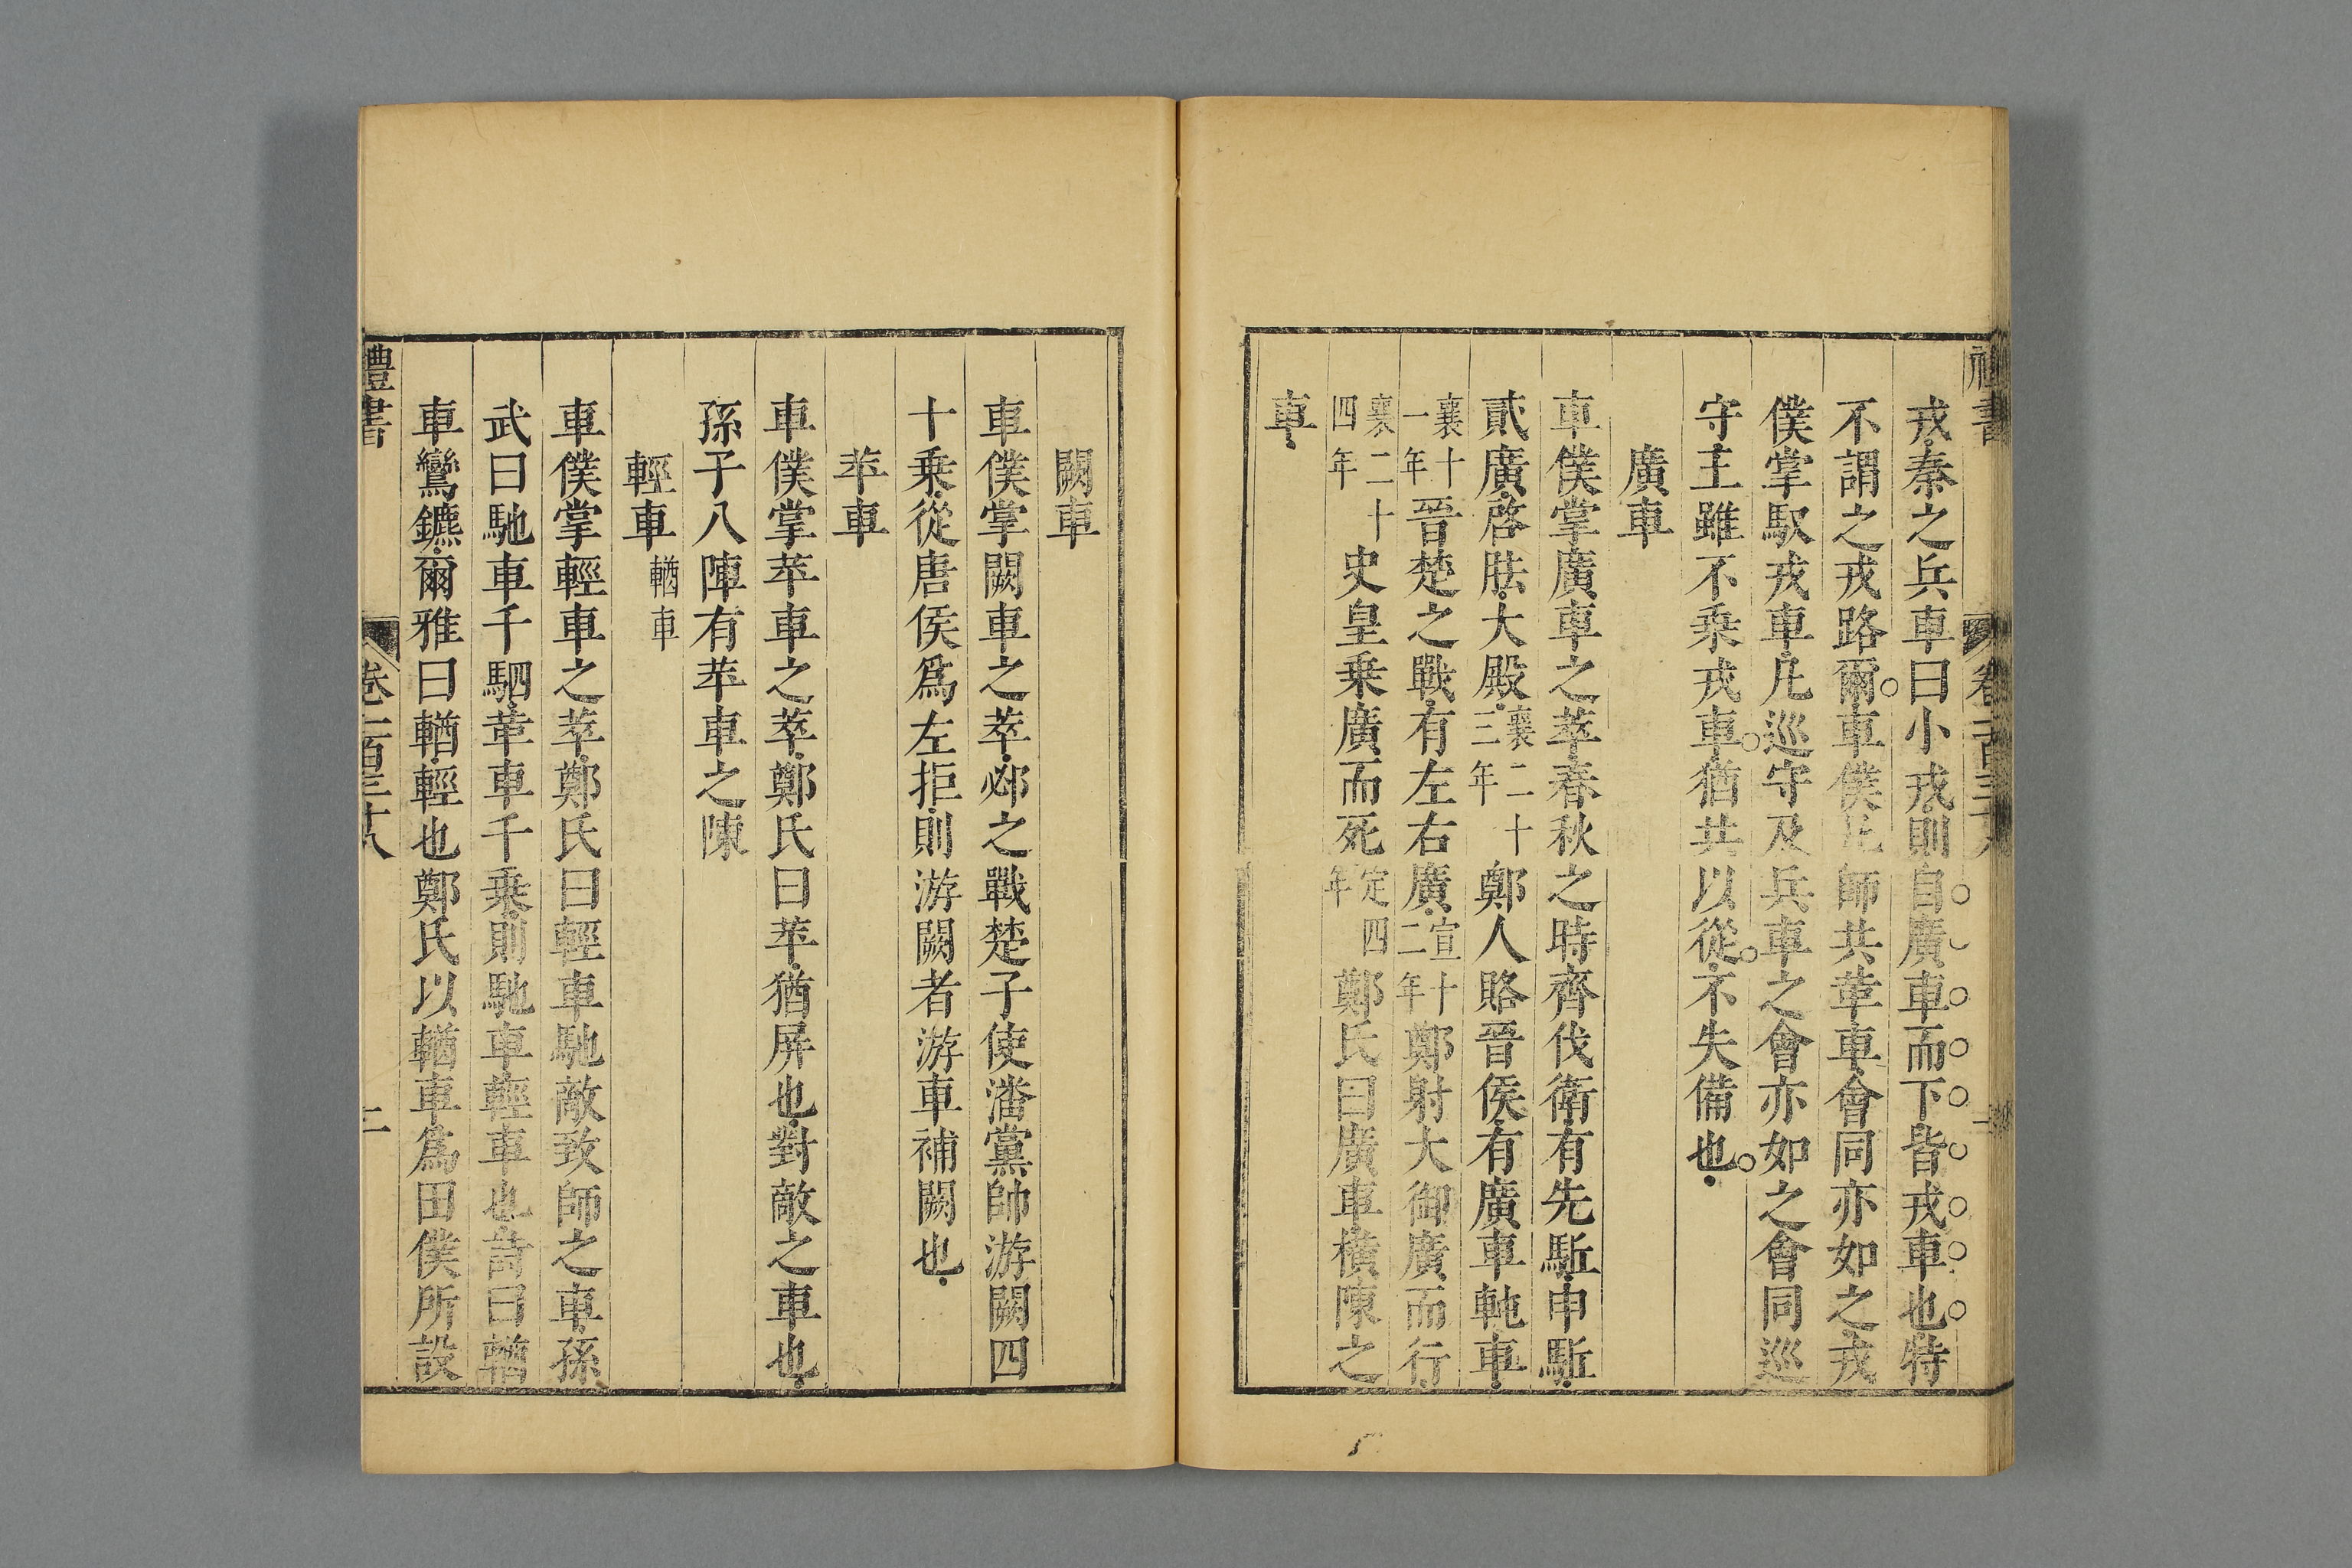 戎秦之兵車曰小戎則自廣車而下皆戎車也特
不謂之戎路爾車僕凡師共革車會同亦如之戎
僕掌馭戎車凡巡守及兵車之會亦如之會同巡
守王雖不乗戎車猶共以從不失備也
廣車
車僕掌廣車之萃春秋之時齊伐衛有先駈申駈
貳廣啓胠大殿襄二十三年鄭人賂晉侯有廣車軘車
襄十一年晉楚之戰有左右廣宣十二年鄭射犬御廣而行
襄二十四年史皇乗廣而死定四年鄭氏曰廣車橫陳之
車
闕車
車僕掌闕車之萃邲之戰楚子使潘黨帥游闕四
十乗從唐侯爲左拒則游闕者游車補闕也
苹車
車僕掌苹車之萃鄭氏曰苹猶屏也對敵之車也
孫子八陣有苹車之陳
輕車 輶車
車僕掌輕車之萃鄭氏曰輕車馳敵致師之車孫
武曰馳車千駟革車千乗則馳車輕車也詩曰輶
車鸞鑣爾雅曰輶輕也鄭氏以輶車爲田僕所設
禮書 卷一百三十八 二